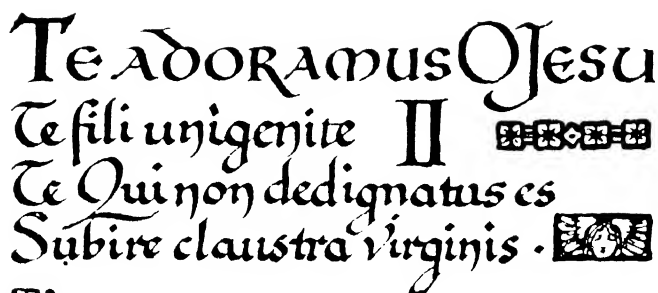 Te adoramus O Jesu
Te fili unigenite II
Te Qui non dedignatus es
Subire claustra Virginis ·